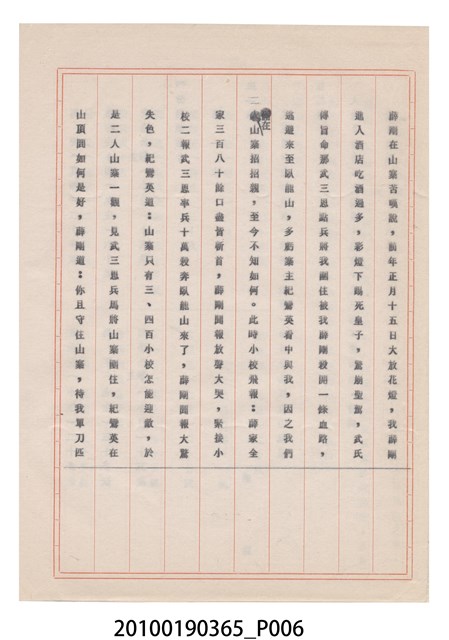 薛剛在山寨苦嘆說,舊年正月十五日大放花燈,我薛剛
進入酒店吃酒過多,彩燈下踢死皇子,驚崩聖駕,武氏
傳旨命那武三思點兵將我圍住被我薛剛殺開一條血路,
逃避來至臥龍山,多虧寨主紀鸞英看中與我,因之我們
二在山寨招招親,至今不知如何。此時小校飛報:薛家全
家三百八十餘口盡皆斬首,薛剛聞報放聲大哭,緊接小
校二報武三思率兵十萬殺奔臥龍山來了,薛剛聞報大驚
失色,紀鸞英道:山寨只有三、四百小校怎能迎敵,於
是二人山寨一觀,見武三思兵馬將山寨圍住,紀鸞英在
山頂圍如何是好,薛剛道:你且守住山寨,待我單刀匹
20100190365_P006